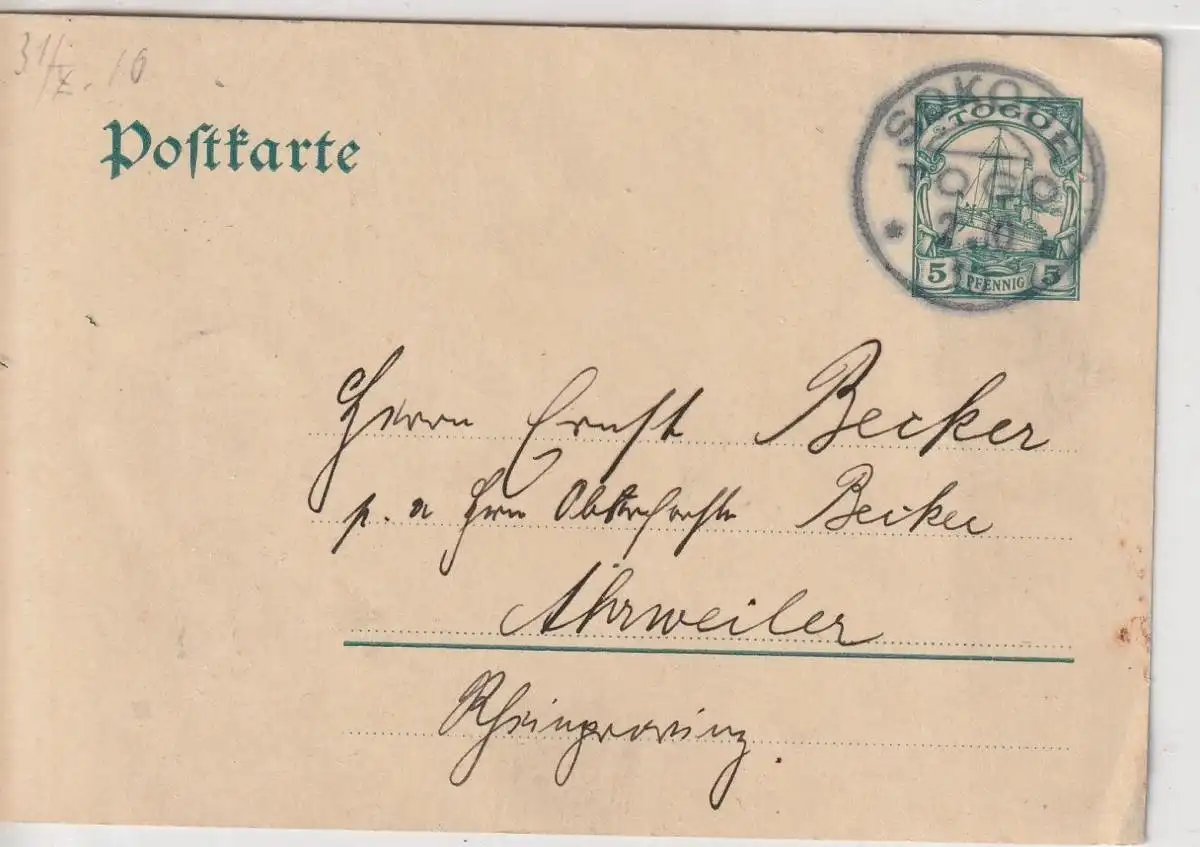 31/X. 10
Postkarte
SOKODE
TOGO
TOGO
5 PFENNIG 5
Herrn Ernst Becker
p. a Herrn Becker
Ahrweiler
Rheinprovinz.